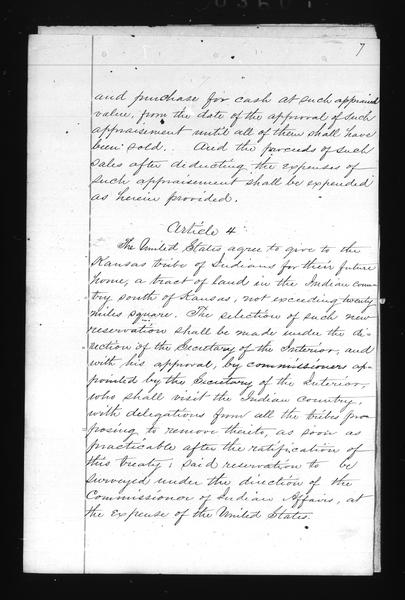 7
and purchase for cash at such appraised
value, from the date of the approval of such
appraisement until all of them shall have
been sold. And the proceeds of such
sales after deducting the expenses of
such appraisement shall be expended
as herein provided.
Article 4
The United States agree to give to the
Kansas tribe of Indians for their future
home, a tract of land in the Indian coun-
try south of Kansas, not exceeding twenty
miles square. The selection of such new
reservation shall be made under the di-
rection of the Secretary of the Interior, and
with his approval, by commissioners ap-
pointed by the Secretary of the Interior,
who shall visit the Indian country,
with delegations from all the tribes pro-
posing to remove thereto, as soon as
practicable after the ratification of
this treaty; said reservation to be
surveyed under the direction of the
Commissioner of Indian Affairs, at
the expense of the United States.